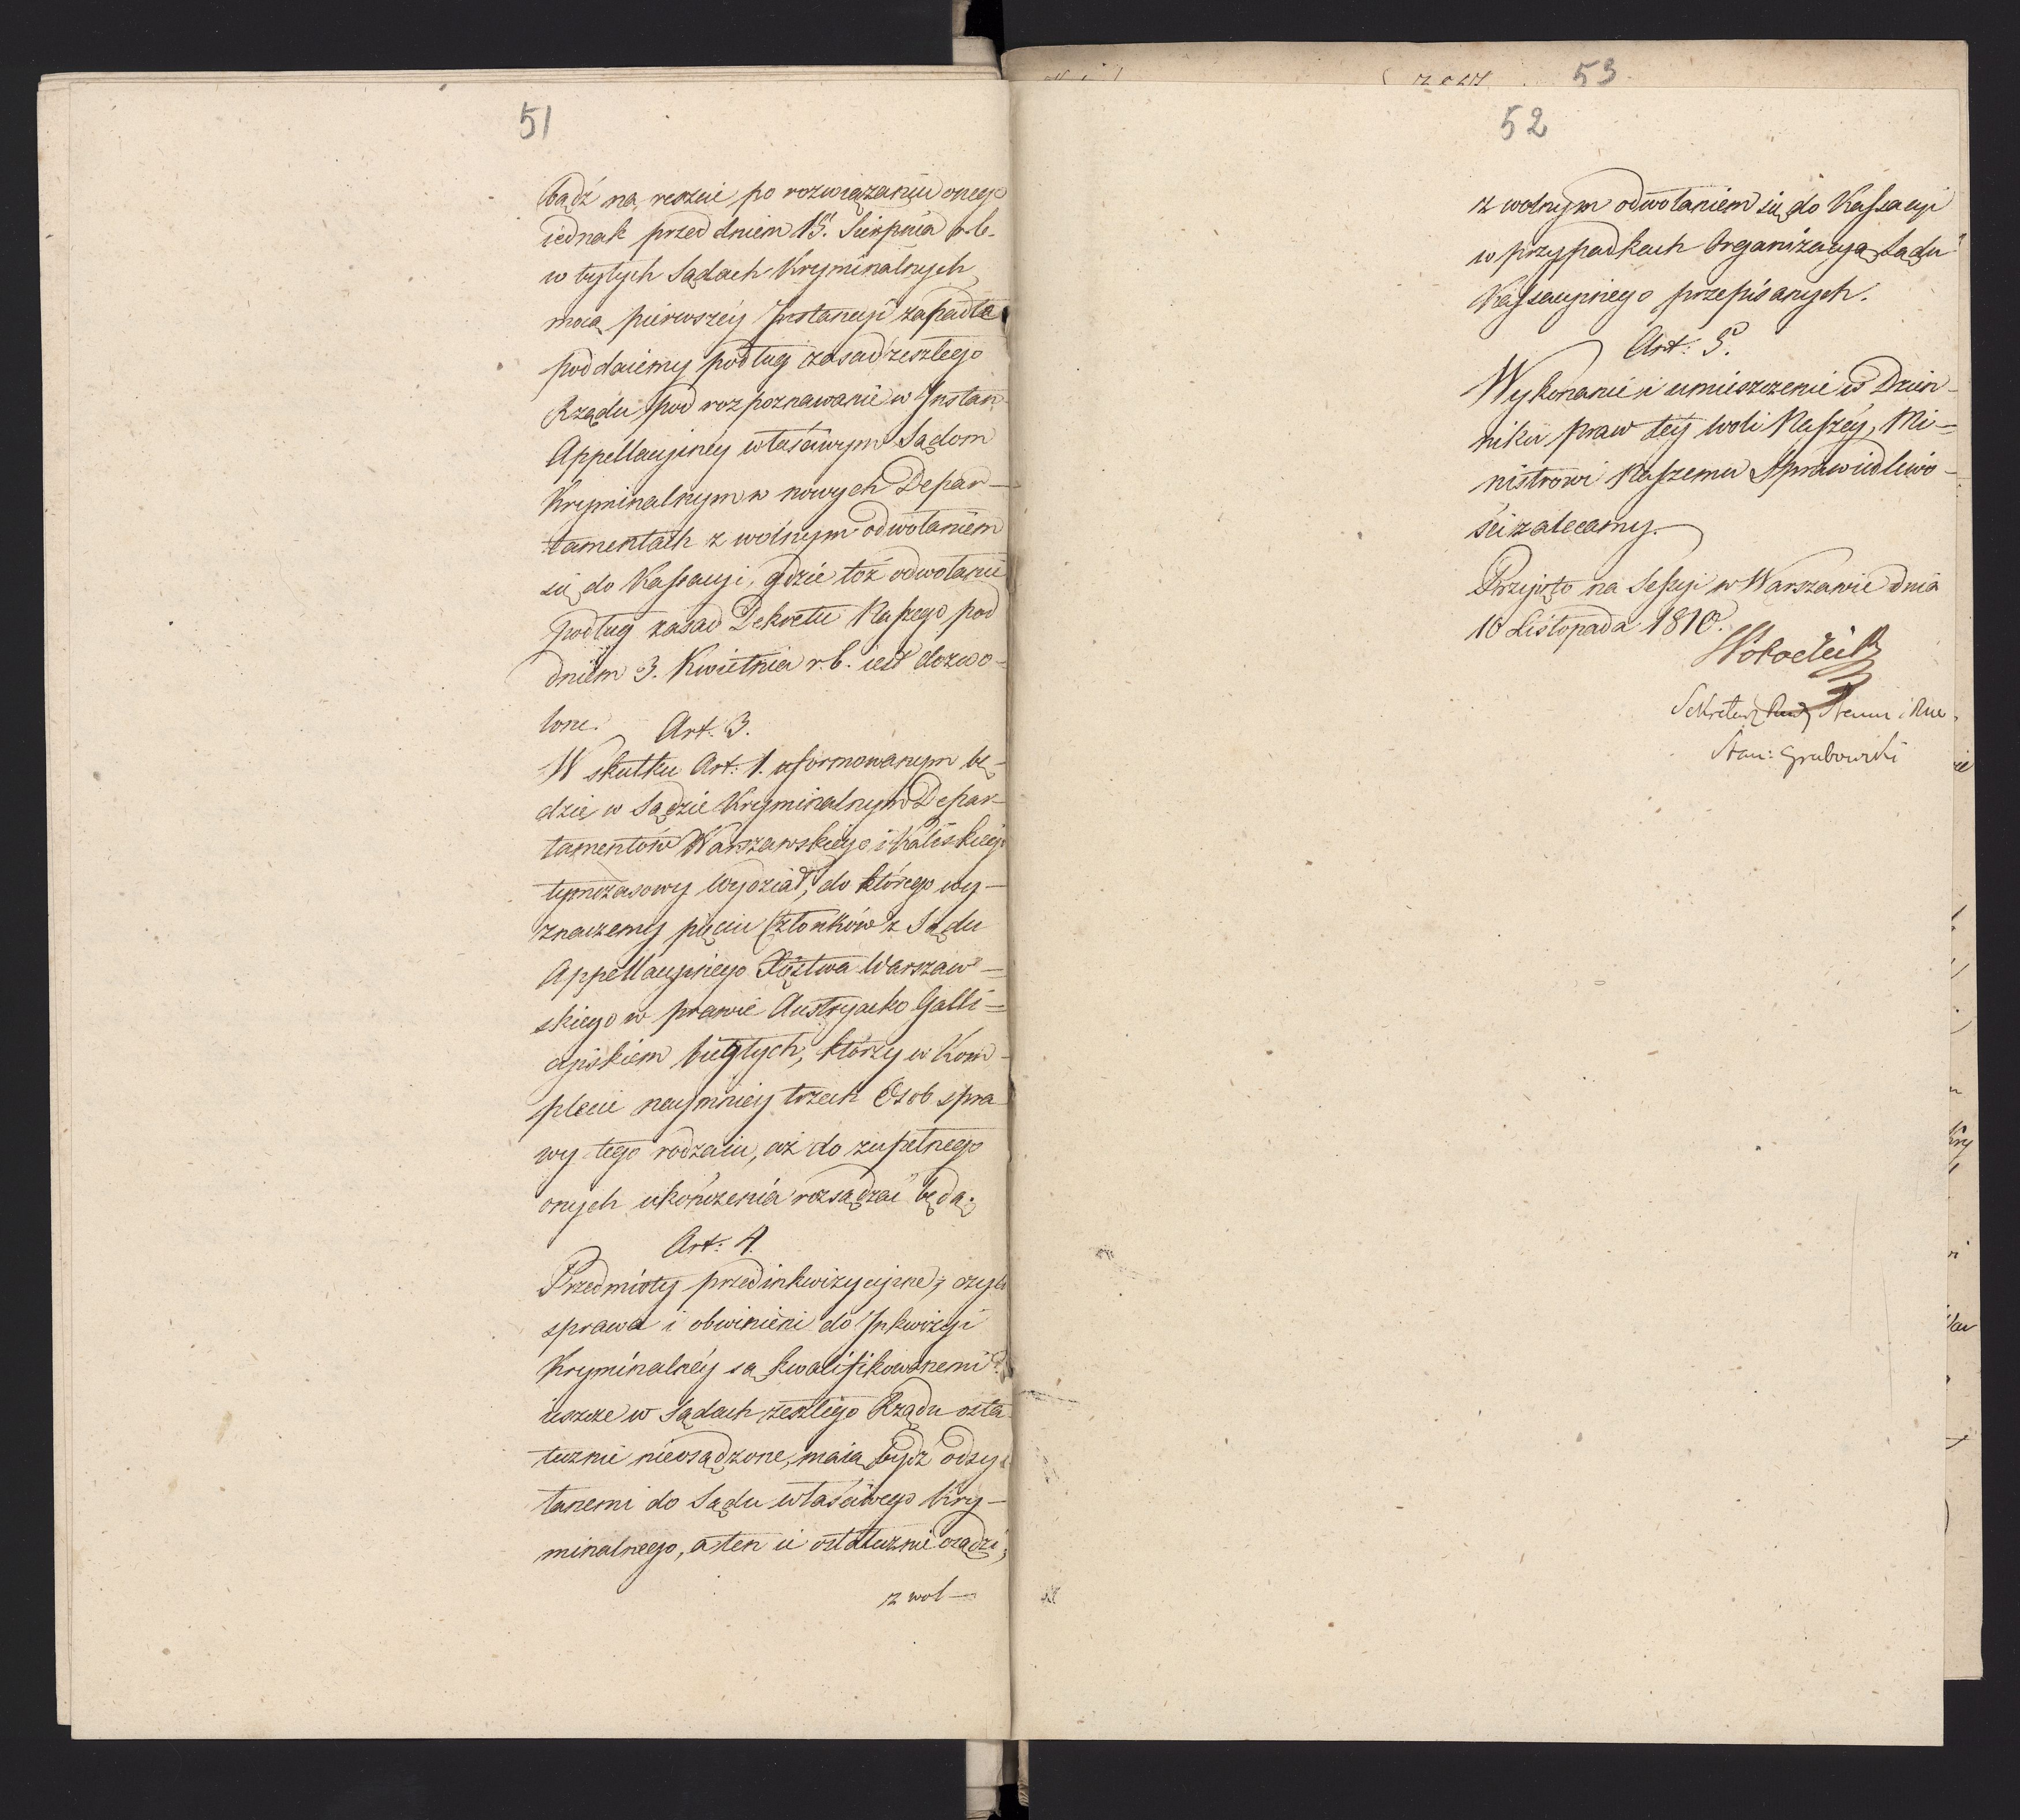 51
bądź na reszcie po rozwiązaniu onego
iednak przed dniem 15. Sierpnia r. b.
w byłych Sądach Kryminalnych
mocą pierwszéy Instancyi zapadłe
poddaiemy podług zasad zeszłego
Rządu pod rozpoznawanie w Instan
Appellacyinéy właściwym Sądom
Kryminalnym w nowych Depar-
tamentach z wolnym odwołaniem
się do Kassacyi, gdzie toż odwołanie
podług zasad Dekretu Naszego pod
dniem 3. Kwietnia r. b. iest dozwo-
lone.
Art. 3.
W skutku Art: 1. uformowanym bę-
dzie w Sądzie Kryminalnym Depar-
tamentów Warszawskiego i Kaliskiego
tymczasowy Wydział, do którego wy-
znaczemy pięciu Członków z Sądu
Appellacyinego Xięztwa Warszaw-
skiego w prawie Austryacko Galli=
cyiskiem biegłych, którzy w Kom-
plecie naymniey trzech Osob spra
wy tego rodzaiu, aż do zupełnego
onych ukończenia rozsądzać będą.
Art: 4.
Przedmioty przedinkwizycyine, czyli
sprawa i obwinieni do Inkwizyi
Kryminalnéy są kwalifikowanemi
ieszcze w Sądach zeszłego Rządu osta
tecznie nieosądzone, maią bydz odsy
łanemi do Sądu właściwego Kry-
minalnego, a ten ie ostatecznie osądzi,
z wol-
53.
52
z wolnym odwołaniem się do Kassacyi
w przypadkach Organizacyą Sądu
Kassacyinego przepisanych.
Art: 5.
Wykonanie i umieszczenie w Dzien-
niku praw téy woli Naszéy, Mi=
nistrowi Naszemu Sprawiedliwo-
ści zalecamy.
Przyięto na Sessyi w Warszawie dnia
10 Listopada 1810.
Sekretarz Rady Stanu i
Stan: Grabowski